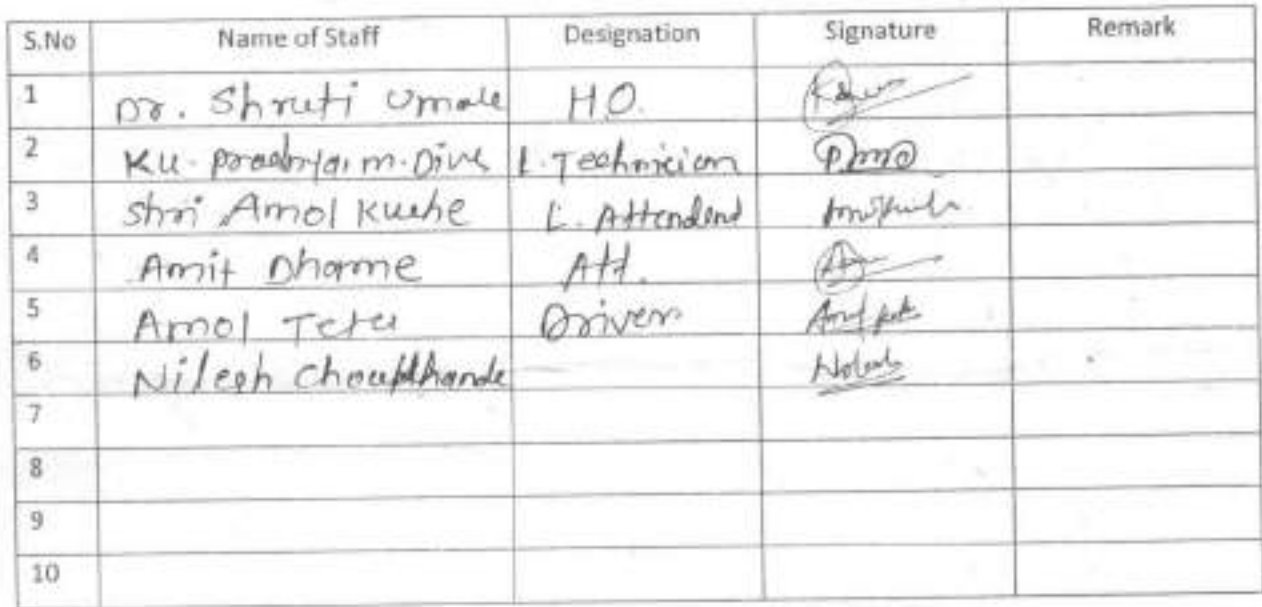 S.No Name of Staff Designation Signature Remark
1 Dr. Shruti Umale H.O.
2 Ku. m. Dive L. Technician
3 Shri Amol Kuche L. Attendend
4 Amit Dhame Att.
5 Amol Driver
6 Nilesh
7
8
9
10